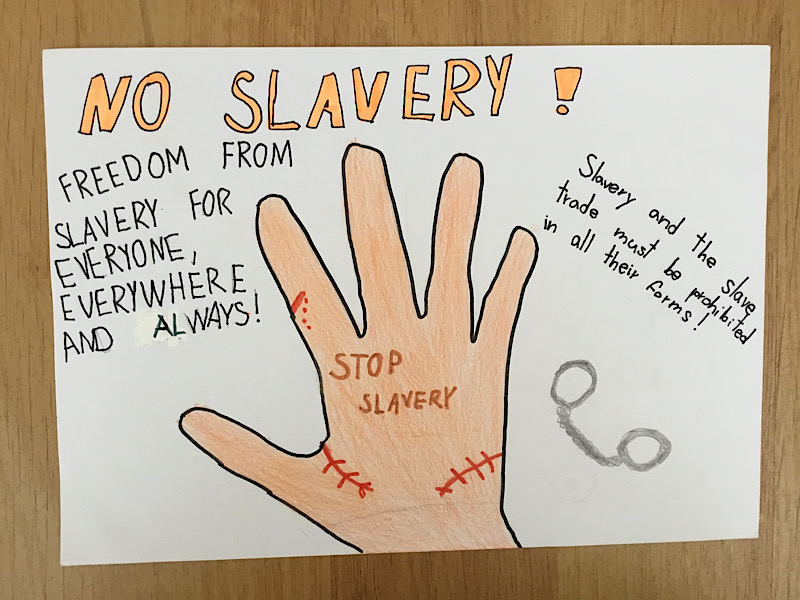 NO SLAVERY!
FREEDOM FROM
SLAVERY FOR
EVERYONE,
EVERYWHERE
AND ALWAYS!
Slavery and the slave
trade must be prohibited
in all their forms!
STOP
SLAVERY